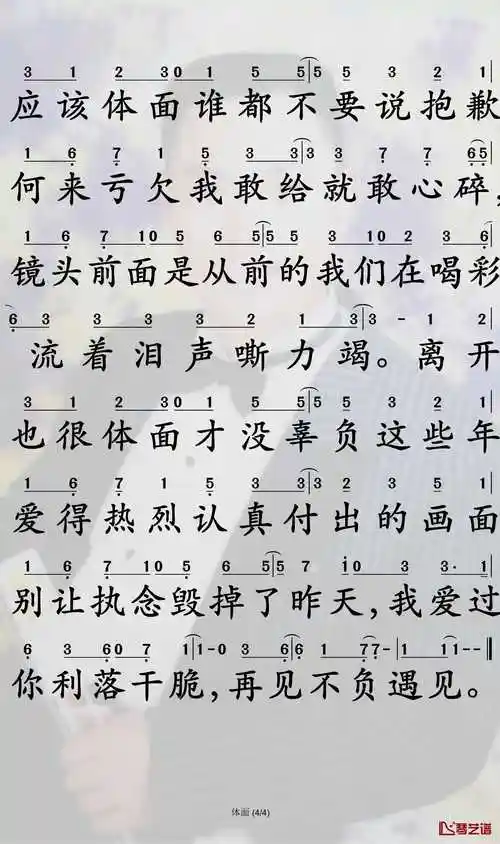 3 1 2 30 1 5 5 5 5 3 2 1
应该体面谁都不要说抱歉
1 6 7 1 5 3 3 3 3 7 7 65
何来亏欠我敢给就敢心碎,
1 6 7 10 5 6 5 5 3 1 10 2 3 6
镜头前面是从前的我们在喝彩
6 3 3 3 3 2 1 3 3 - 1 2
流着泪声嘶力竭。离开
3 1 2 30 1 5 5 5 5 3 2 1
也很体面才没辜负这些年
1 6 7 1 5 3 3 3 2 3 5 1
爱得热烈认真付出的画面
1 6 7 10 5 6 5 5 7 10 3 3· 1
别让执念毁掉了昨天,我爱过
6 3 60 7 1 1-0 3 6 3 6 1 7 7- 1 1--
你利落干脆,再见不负遇见。
体面 (4/4)
琴艺谱